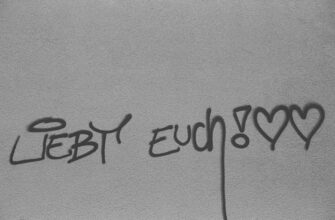 LIEBT EUCH!♡♡